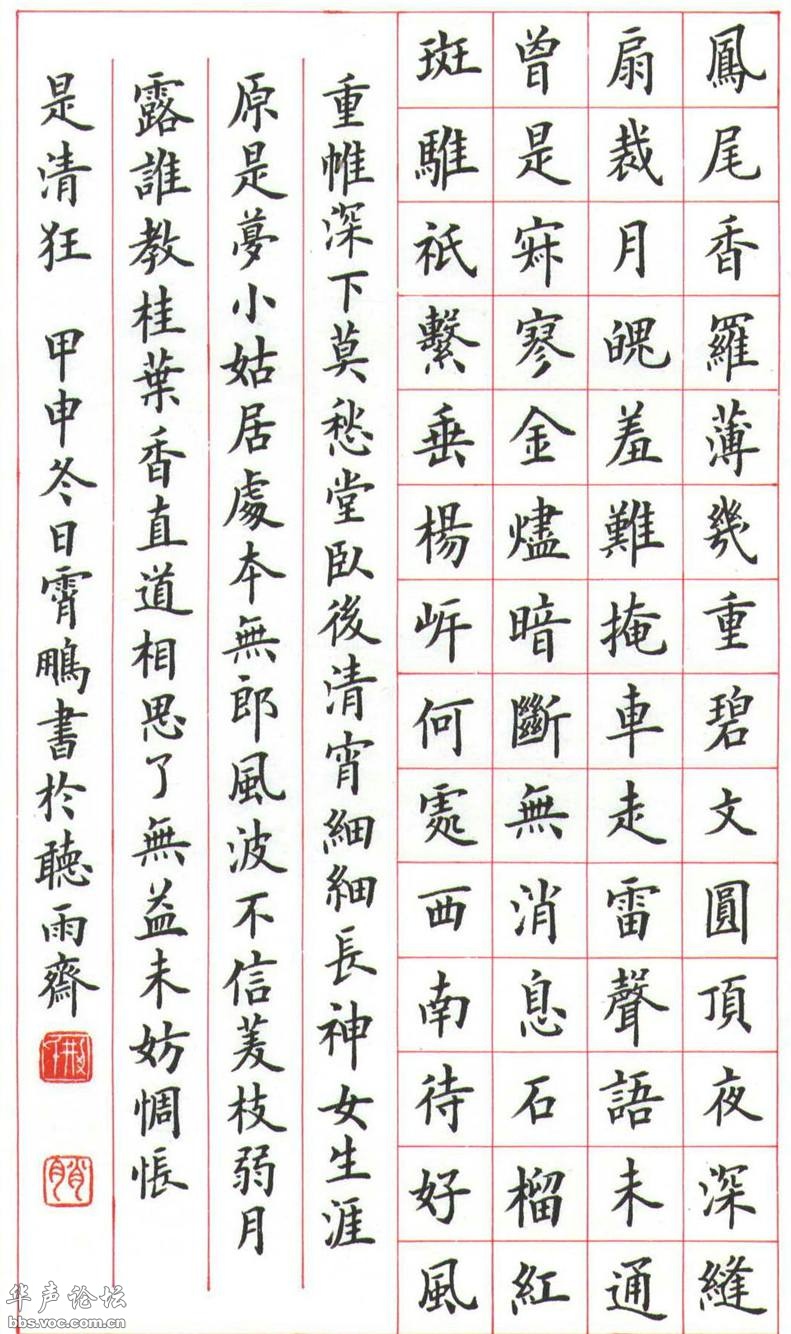 鳳尾香羅薄幾重碧文圓頂夜深縫
扇裁月魄羞難掩車走雷聲語未通
曾是寂寥金燼暗斷無消息石榴紅
斑騅祇繫垂楊岸何處西南待好風
重帷深下莫愁堂臥後清宵細細長神女生涯
原是夢小姑居處本無郎風波不信菱枝弱月
露誰教桂葉香直道相思了無益未妨惆悵
是清狂 甲申冬日霄鵬書於聽雨齋
华声论坛
bbs.voc.com.cn